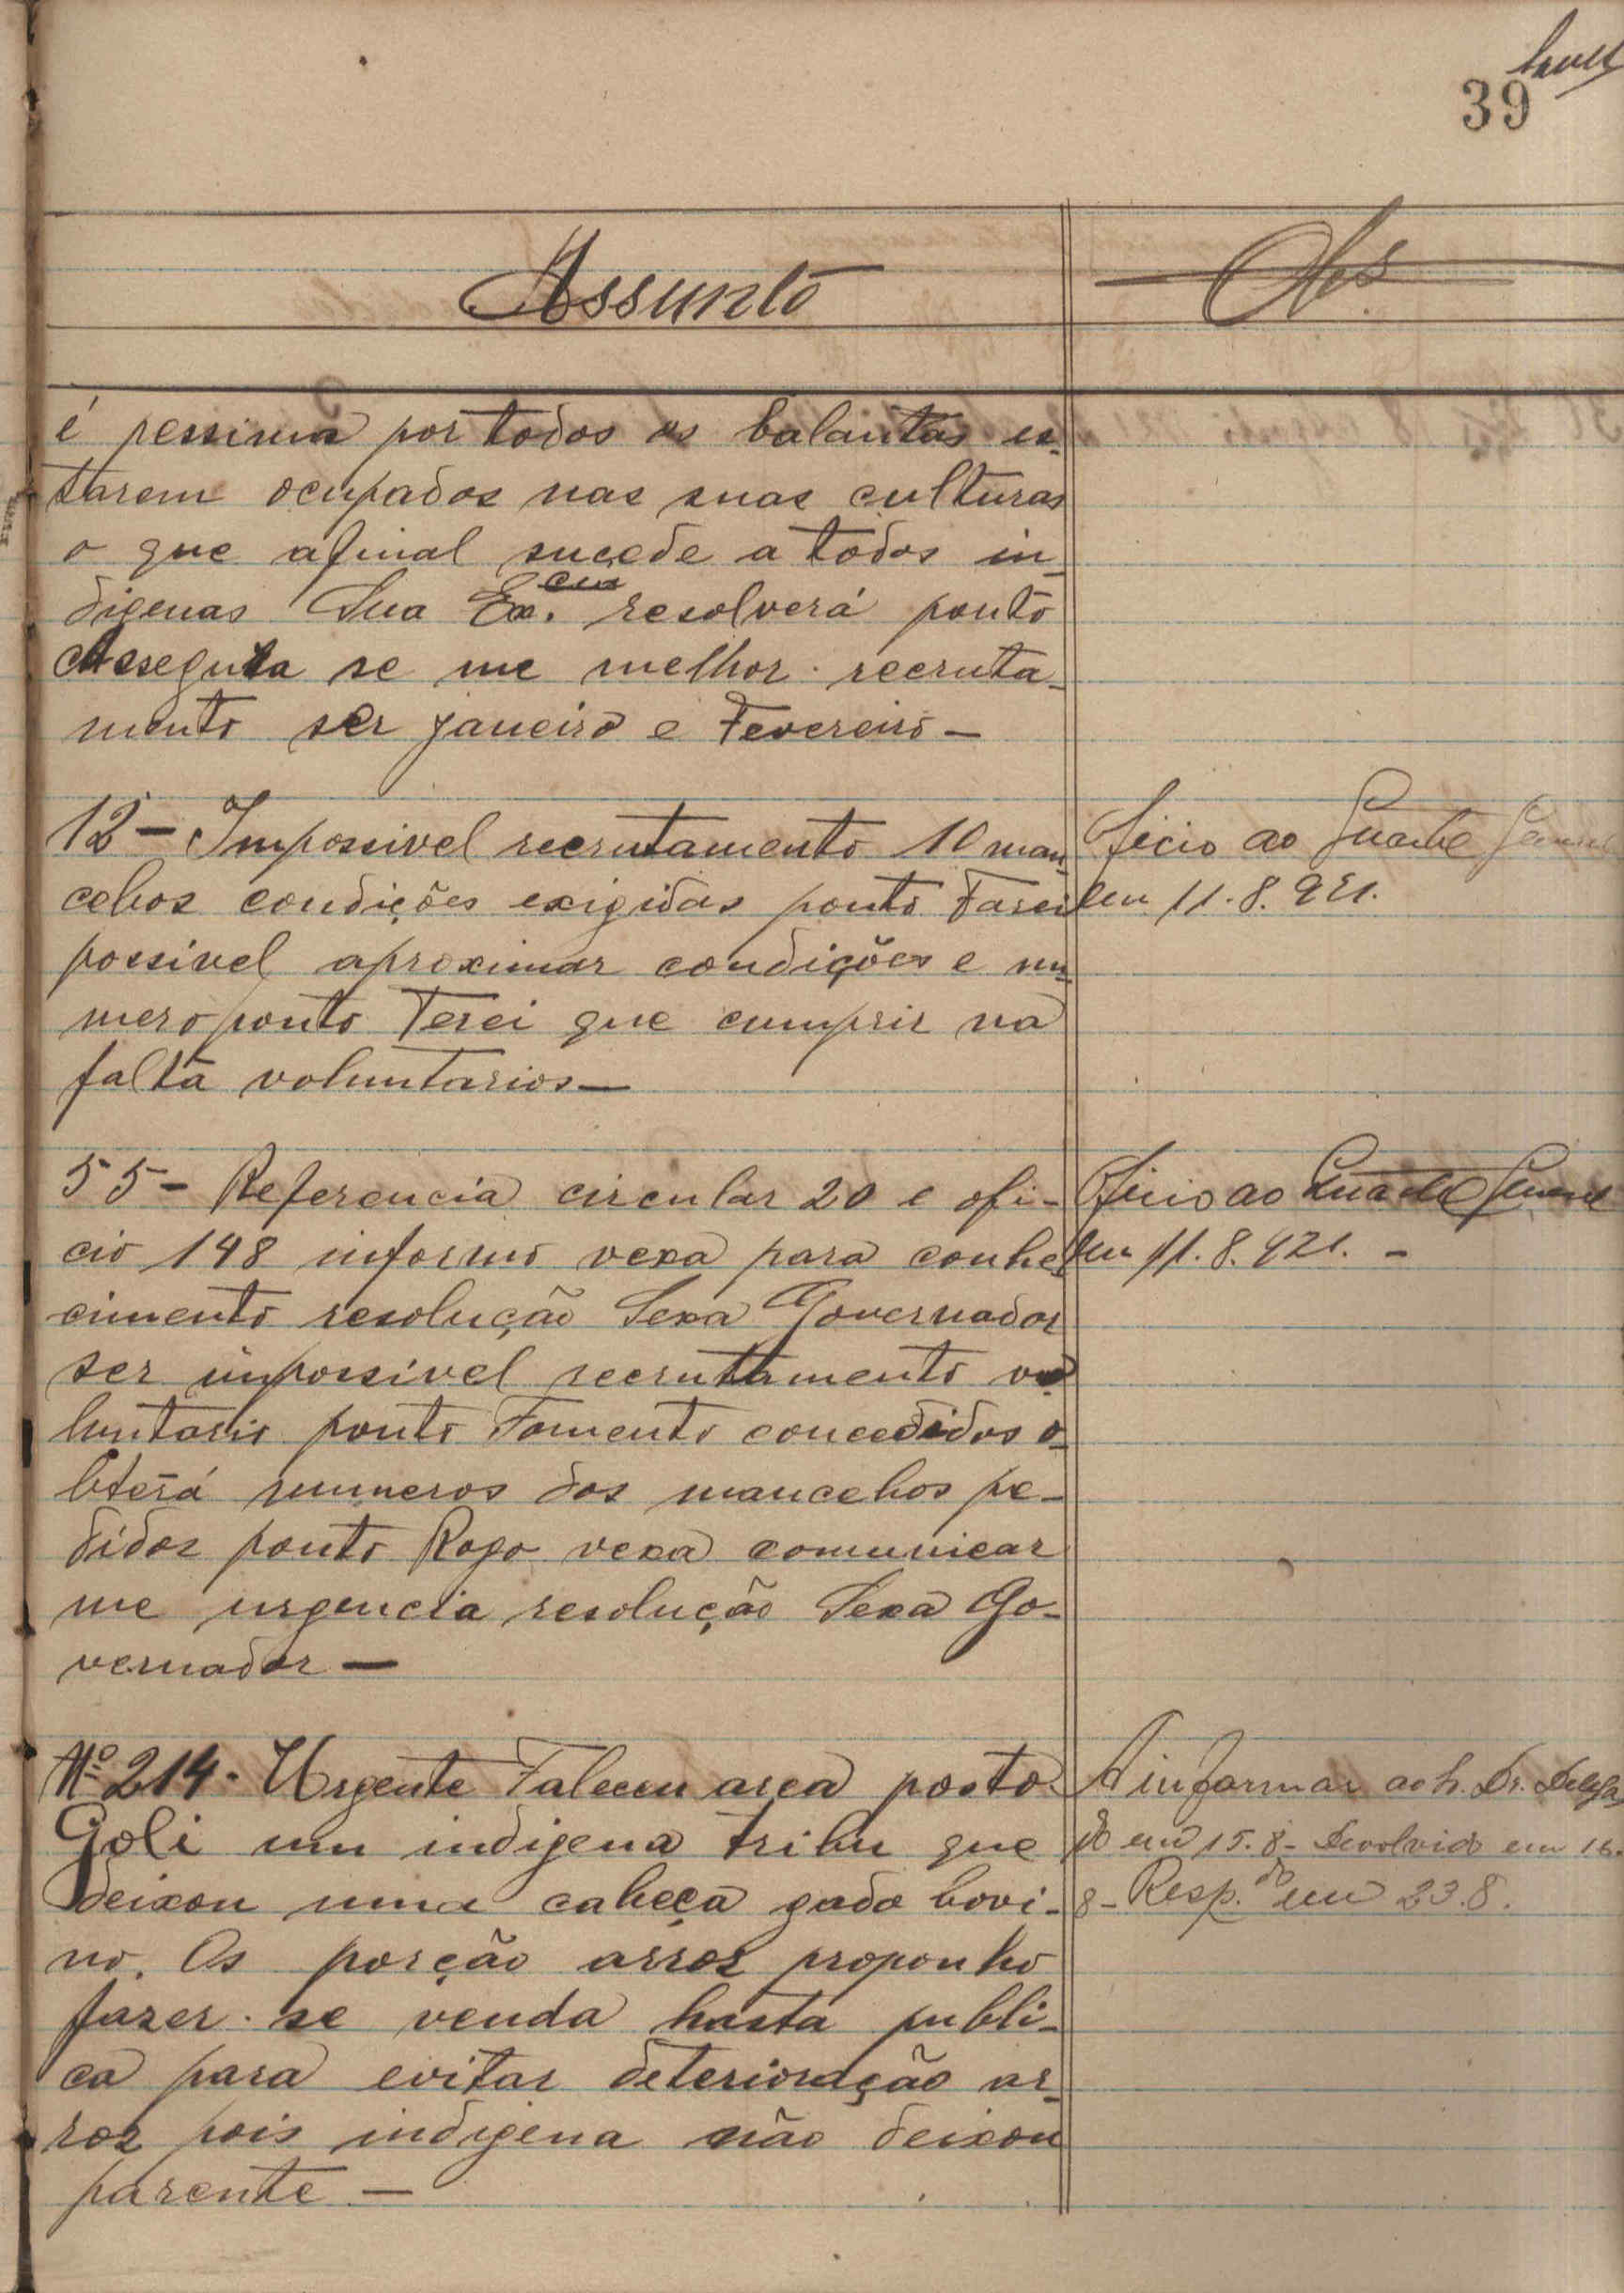 39
Assunto
Obs.
é pessima por todos os balantas es-
tarem ocupados nas suas culturas
o que afinal sucede a todos in-
digenas Sua Ex.cia resolverá ponto
Assegura se me melhor recruta-
mento ser janeiro e Fevereiro -
12 - Impossivel recrutamento 10 man-
cebos condições exigidas ponto Farei
possivel aproximar condições e nu-
mero ponto Terei que cumprir na
falta voluntarios -
Oficio ao Quartel General
em 11.8.921.
55 - Referencia circular 20 e ofi-
cio 148 informo vexa para conhe-
cimento resolução Sexa Governador
ser impossivel recrutamento vo-
luntario ponto Fomento concedidos o-
bterá numeros dos mancebos pe-
didos ponto Rogo vexa comunicar
me urgencia resolução Sexa Go-
vernador -
Oficio ao Quartel General
em 11.8.921. -
Nº 214 - Urgente Faleceu area posto
Goli um indigena tribu que
deixou uma cabeça gado bovi-
no. Os porção arroz proponho
fazer-se venda hasta publi-
ca para evitar deterioração ar-
roz pois indigena não deixou
parente -
A informar ao S. Dr. Delega
do em 15.8 - Devolvido em 16.
8 - Resp.do em 23.8.